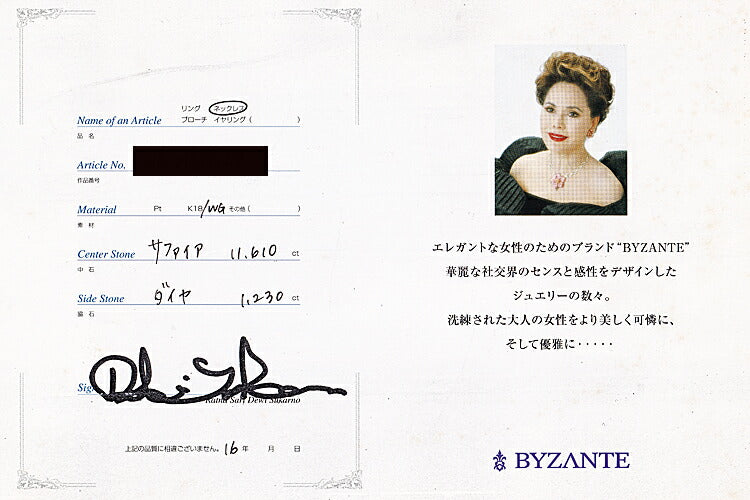 リング ネックレス
Name of an Article ブローチ イヤリング ( )
品 名
Article No.
作品番号
Material Pt K18/WG その他 ( )
素 材
Center Stone サファイア 11.610 ct
中 石
Side Stone ダイヤ 1.230 ct
脇 石
Sig
Ratna Sari Dewi Sukarno
上記の品質に相違ございません。 16 年 月 日
エレガントな女性のためのブランド“BYZANTE”
華麗な社交界のセンスと感性をデザインした
ジュエリーの数々。
洗練された大人の女性をより美しく可憐に、
そして優雅に・・・・・
BYZANTE